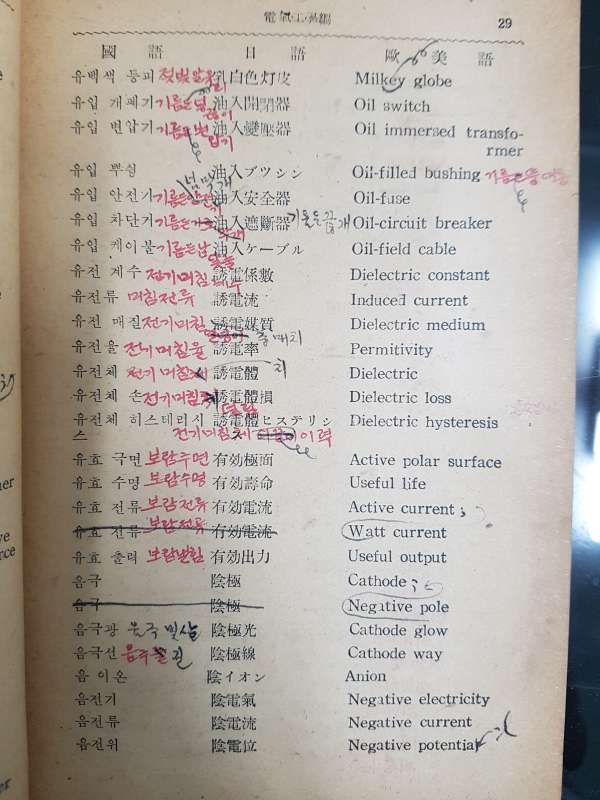 電氣工學編 29
國 語 日 語 歐 美 語
유백색 등피 乳白色灯皮 Milkey globe
유입 개폐기 油入開閉器 Oil switch
유입 변압기 油入變壓器 Oil immersed transfo-
rmer
유입 뿌싱 油入ブツシン Oil-filled bushing
유입 안전기 油入安全器 Oil-fuse
유입 차단기 油入遮斷器 Oil-circuit breaker
유입 케이블 油入ケーブル Oil-field cable
유전 계수 전기미침 誘電係數 Dielectric constant
유전류 미침전류 誘電流 Induced current
유전 매질 전기미침 誘電媒質 Dielectric medium
유전율 전기미침율 誘電率 Permitivity
유전체 전기미침 誘電體 Dielectric
유전체 손 전기미침 誘電體損 Dielectric loss
유전체 히스테리시 誘電體ヒステリシ Dielectric hysteresis
스 전기미침체 이력
유효 극면 보람수면 有効極面 Active polar surface
유효 수명 보람수명 有効壽命 Useful life
유효 전류 보람전류 有効電流 Active current
유효 전류 보람전류 有効電流 Watt current
유효 출력 有効出力 Useful output
음극 陰極 Cathode
음극 陰極 Negative pole
음극광 陰極光 Cathode glow
음극선 陰極線 Cathode way
음 이온 陰イオン Anion
음전기 陰電氣 Negative electricity
음전류 陰電流 Negative current
음전위 陰電位 Negative potential